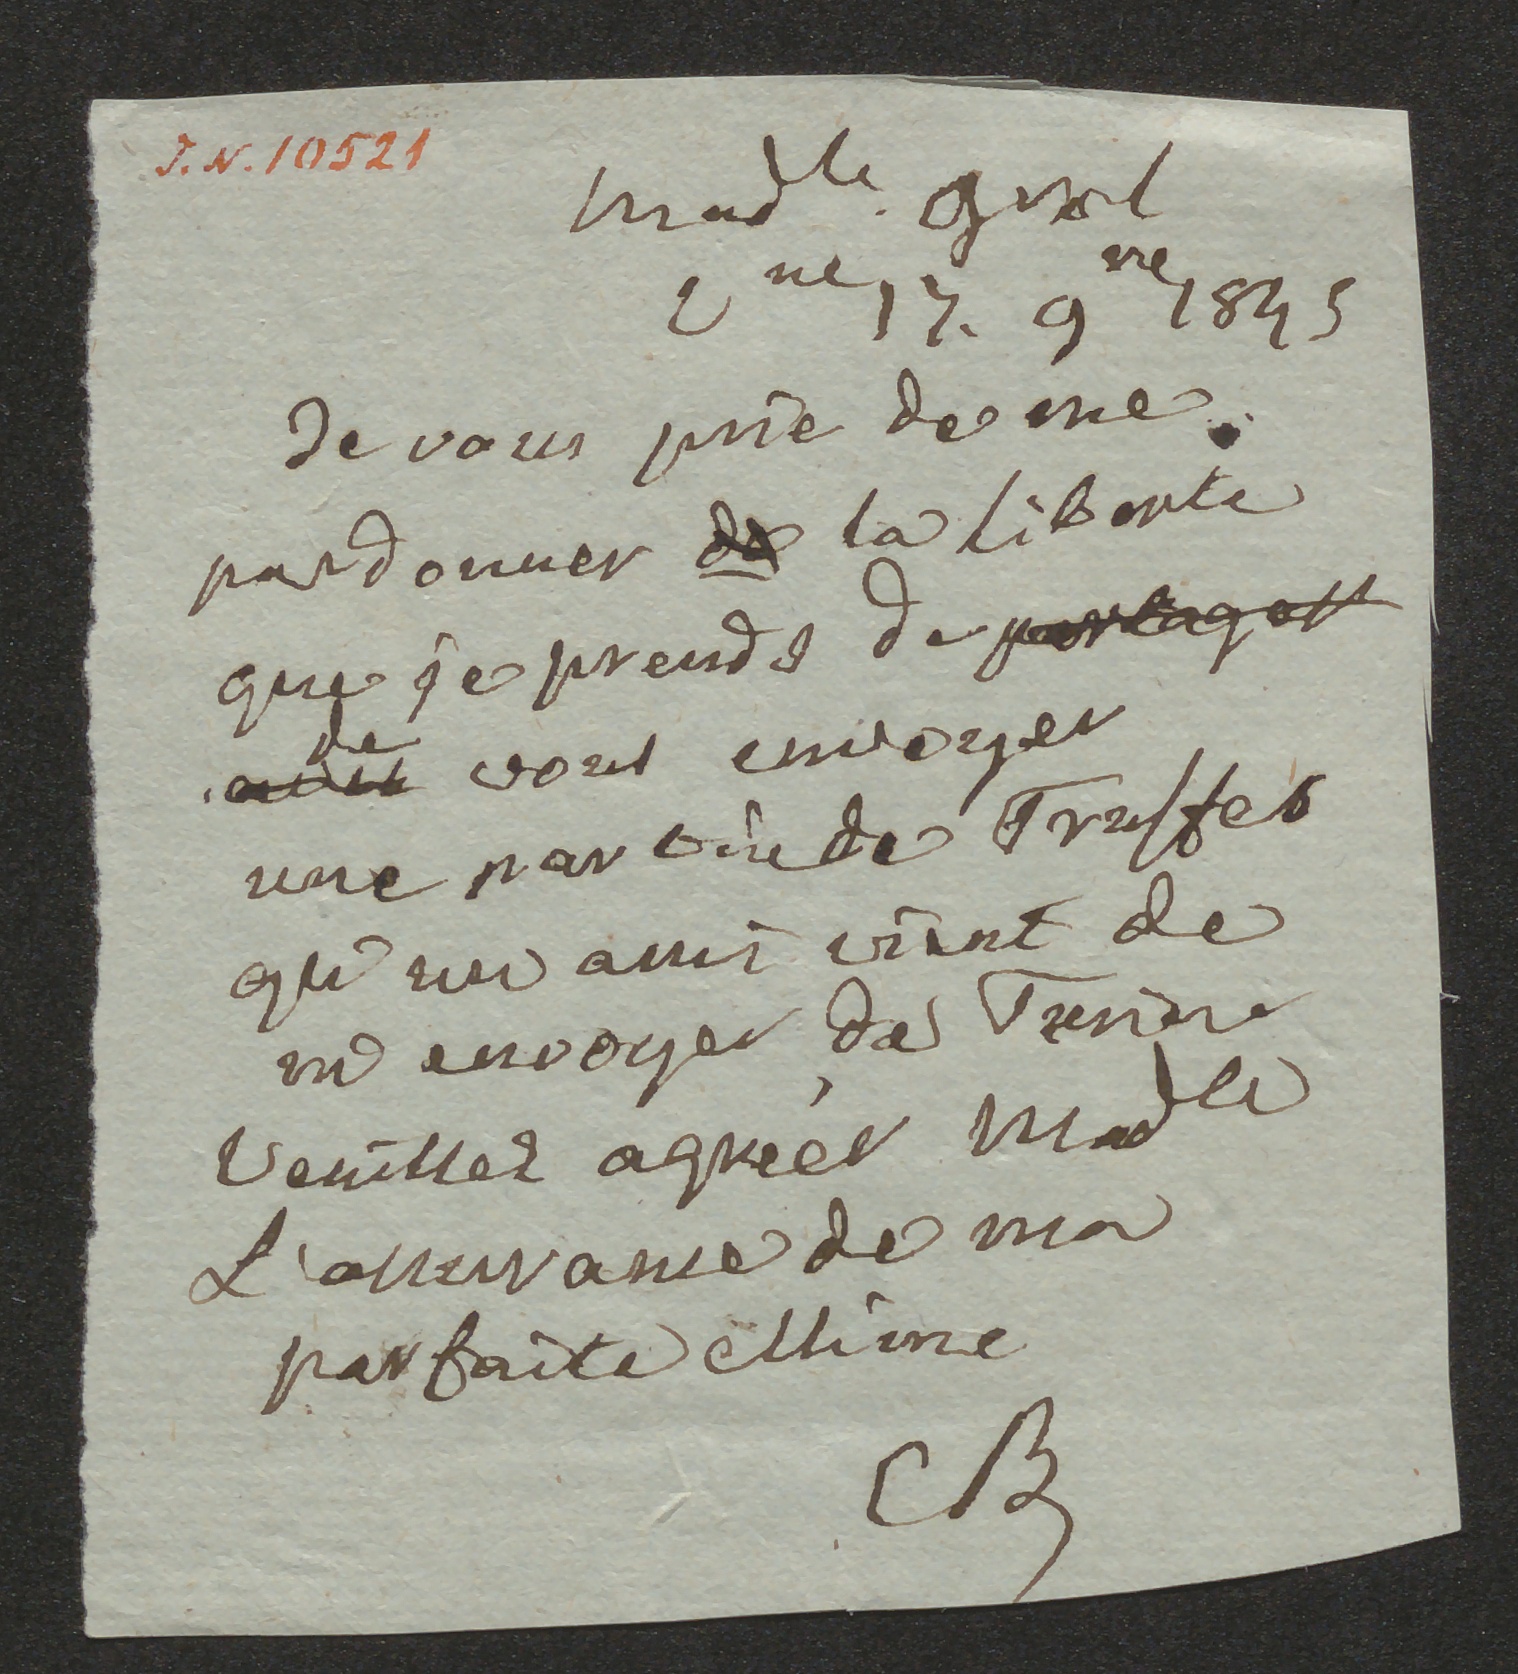 J.N. 10521
Mad^lle. 
V^ne 17. 9^vre 1845
Je vous prie de me
pardonner de la liberte
que je prends de partager
de vous envoyer
une partie de Truffes
qu'un ami vient de
m'envoyer de Turin
Veuillez agréer Mad^lle
L'assurance de ma
parfaite estime
CB